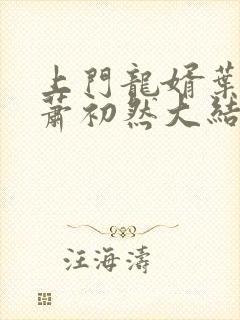 上門龍婿葉
蕭初然大結
汪海濤